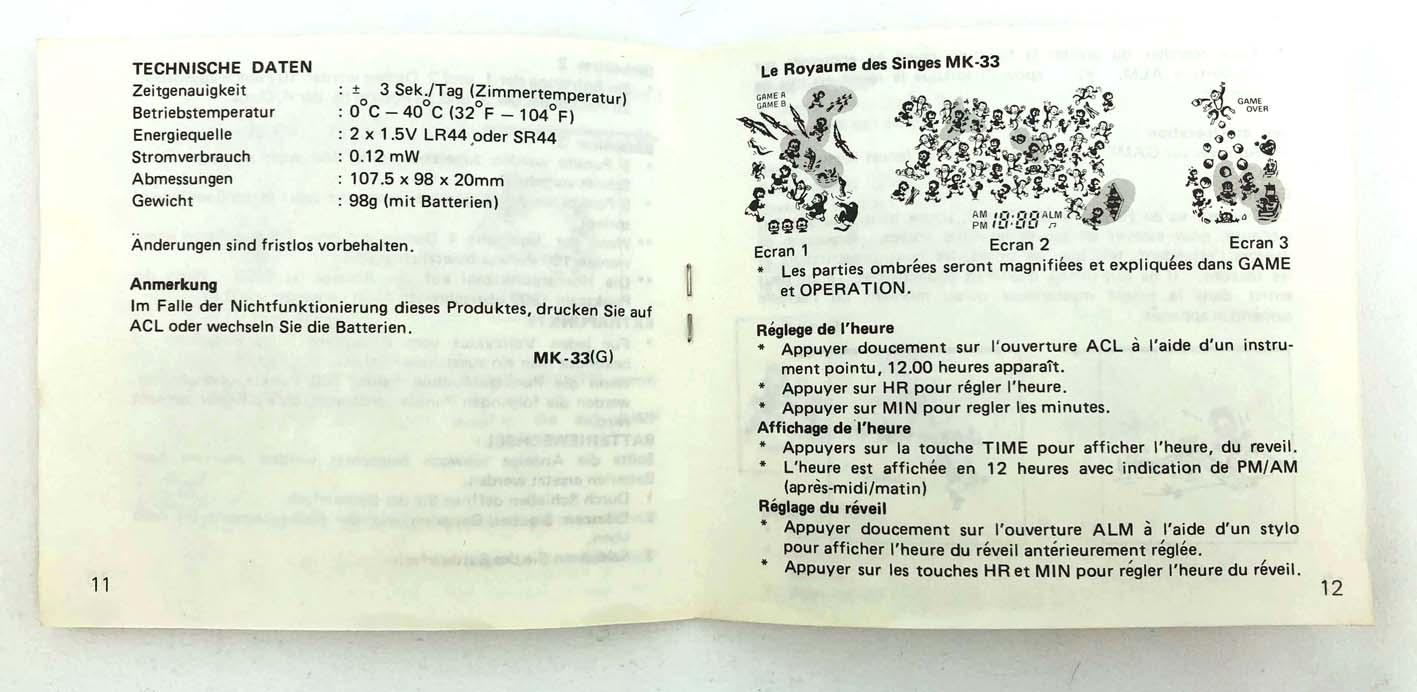 TECHNISCHE DATEN
Zeitgenauigkeit : ± 3 Sek./Tag (Zimmertemperatur)
Betriebstemperatur : 0°C – 40°C (32°F – 104°F)
Energiequelle : 2 x 1.5V LR44 oder SR44
Stromverbrauch : 0.12 mW
Abmessungen : 107.5 x 98 x 20mm
Gewicht : 98g (mit Batterien)
Änderungen sind fristlos vorbehalten.
Anmerkung
Im Falle der Nichtfunktionierung dieses Produktes, drucken Sie auf
ACL oder wechseln Sie die Batterien.
MK-33(G)
11
Le Royaume des Singes MK-33
GAME A
GAME B
GAME
OVER
AM 10:00 ALM
PM
Ecran 1
Ecran 2
Ecran 3
* Les parties ombrées seront magnifiées et expliquées dans GAME
et OPERATION.
Réglege de l'heure
* Appuyer doucement sur l'ouverture ACL à l'aide d'un instru-
ment pointu, 12.00 heures apparaît.
* Appuyer sur HR pour régler l'heure.
* Appuyer sur MIN pour regler les minutes.
Affichage de l'heure
* Appuyers sur la touche TIME pour afficher l'heure, du reveil.
* L'heure est affichée en 12 heures avec indication de PM/AM
(après-midi/matin)
Réglage du réveil
* Appuyer doucement sur l'ouverture ALM à l'aide d'un stylo
pour afficher l'heure du réveil antérieurement réglée.
* Appuyer sur les touches HR et MIN pour régler l'heure du réveil.
12